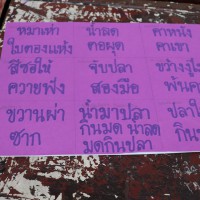 หมาเห่า
ใบตองแห้ง
น้ำลด
ตอผุด
คาหนัง
คาเขา
สีซอให้
ควายฟัง
จับปลา
สองมือ
ขว้างงู
พ้นคอ
ขวานผ่า
ซาก
น้ำมาปลา
กินมด น้ำลด
มดกินปลา
ปลา
กิน